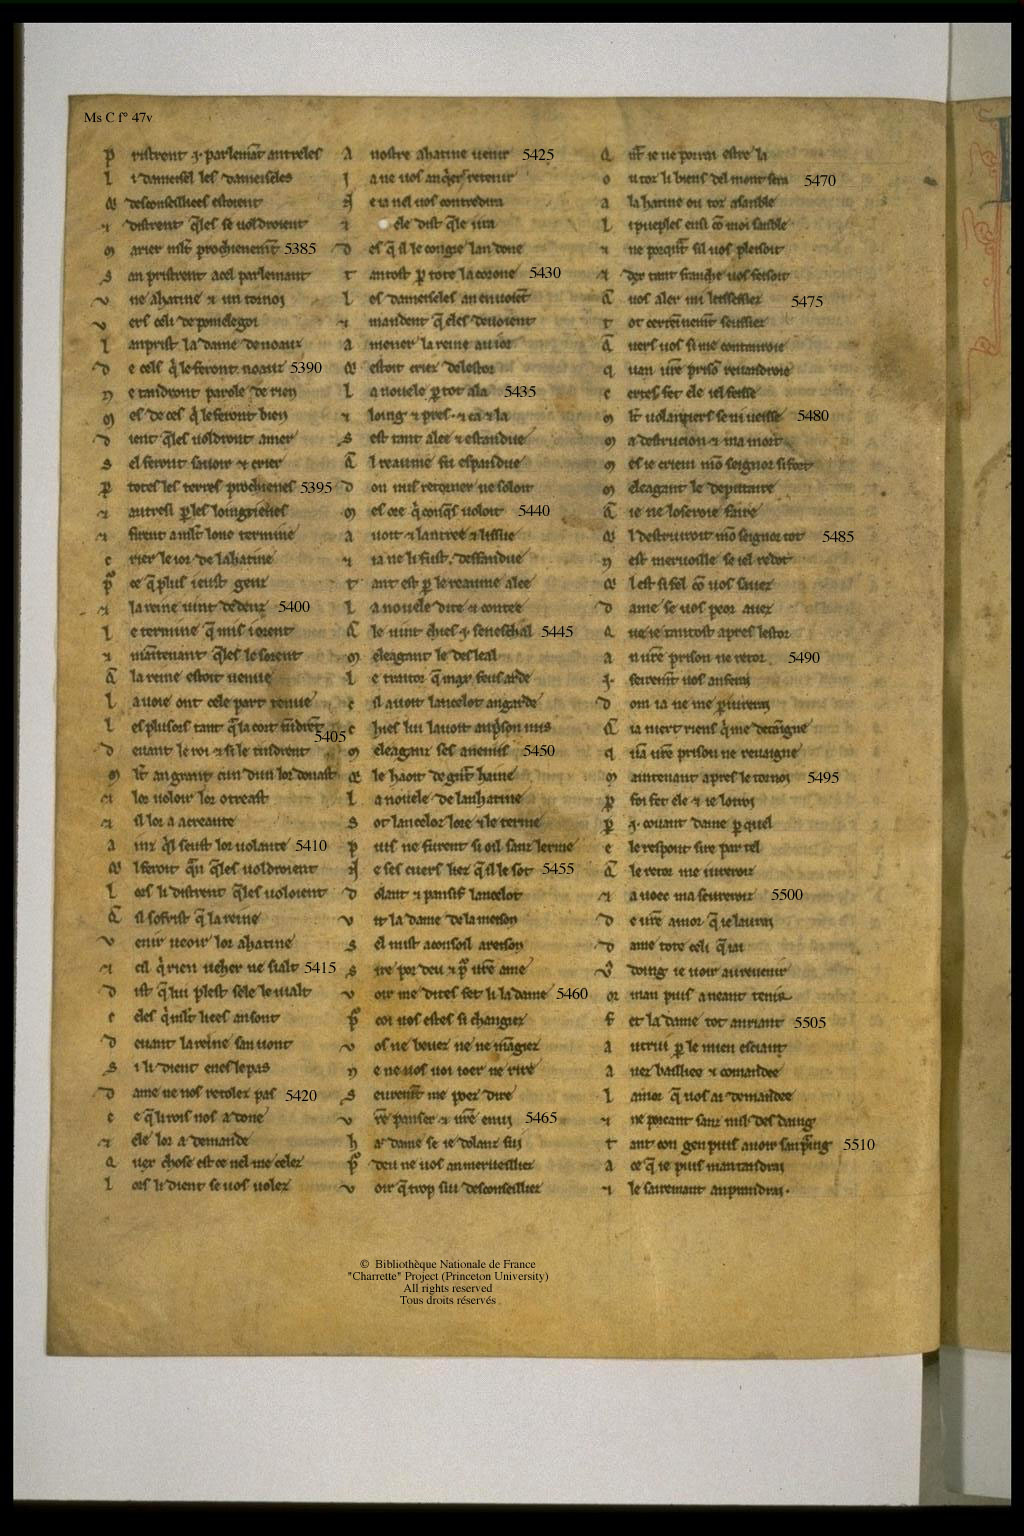 Ms C fº 47v
P ristrent .j. parlemāt antreles
L i dameisel les dameiseles
Q desconselliees estoient
⁊ distrent q̄les se voldroient
M arier mlt̄ prochienemt̄ 5385
S an pristrent a cel parlemant
V ne ahatine ⁊ un tornoi
V ers celi de pomelegoi
L anprist la dame de noauz
D e cels q̇ le feront noauz 5390
N e tandront parole de rien
M es de ces q̇ le feront bien
D ient q̄les voldront amer
S el feront savoir ⁊ crier
P totes les terres prochienes 5395
⁊ autresi ꝑ les loingtienes
⁊ firent a mlt̄ lonc termine
C rier le ior de lahatine
P ce q̄ plus i eust genz
⁊ la reine vint dedenz 5400
L e termine q̄ mis i orent
⁊ maītenant q̄les le sorent
Q la reine estoit venue
L a voie ont cele part tenue
L es plusors tant q̄ la cort vindrēt
5405
D evant le roi ⁊ si le tindrent
M lt̄ an grant c'un dun lor donast
⁊ lor voloir lor otreast
⁊ il lor a acreante
A inz q̄l seust lor volante 5410
Q l feroit q̄n q̄les voldroient
L ors li distrent q̄les voloient
Q il sofrist q̄ la reine
V enir veoir lor ahatine
⁊ cil q̇ rien veher ne sialt 5415
D ist q̄ lui plest sele le vialt
C eles q̇ mlt̄ liees an sont
D evant la reine san vont
S i li dient enes le pas
D ame ne nos retolez pas 5420
C e q̄ li rois nos a done
⁊ ele lor a demande
Q uex chose est ce nel me celez
L ors li dient se vos volez
A nostre ahatine venir 5425
J a ne vos an q̇er retenir
J a nel vos contredira
⁊ ele dist q̄le ira
D es q̄ il le congie lan done
T antost ꝑ tote la corone 5430
L es dameiseles an envoiēt
⁊ mandent q̄ eles devoient
A mener la reine au ior
Q estoit criez de lestor
L a novele ꝑ tot ala 5435
⁊ loing ⁊ pres ⁊ ca ⁊ la
S est tant alee ⁊ estandue
Q l reaume fu espandue
D on nus retorner ne soloit
M es ore q̇conq̄s voloit 5440
A voit ⁊ lantree ⁊ lissue
⁊ ia ne li fust deffandue
T ant est ꝑ le reaume alee
L a novele dite ⁊ contee
Q le vint chies .j. seneschal 5445
M eleagant le desleal
L e traitor q̄ max feus arde
C il avoit lancelot an garde
C hies lui lavoit an p̄son mis
M eleaganz ses anemis 5450
Q le haoit de grāt haine
L a novele de lanhatine
S ot lanceloz lore ⁊ le terme
P uis ne furent si oil sanz lerme
N e ses cuers liez q̄ il le sot 5455
D olant ⁊ pansif lancelot
V it la dame de la meison
S el mist a consoil a reison
S ire por deu ⁊ p̄ vr̄e ame
V oir me dites fet li la dame 5460
P coi vos estes si changiez
V os ne bevez ne ne māgiez
N e ne vos voi ioer ne rire
S euremt̄ me poez dire
V r̄e panser ⁊ vr̄e enui 5465
H a dame se ie dolanz sui
P deu ne vos an merveilliez
V oir q̄ trop sui desconseilliez
Q nt̄ ie ne porrai estre la
O u toz li biens del mont sera 5470
A lahatine ou toz asanble
L i pueples ensi cō moi sanble
⁊ ne porq̄nt sil vos pleisoit
⁊ dex tant franche vos feisoit
Q vos aler mi leissessiez 5475
T ot certeinemt̄ seussiez
Q vers vos si me contanroie
Q uan vr̄e prison revandroie
C ertes fet ele iel feisse
M lt̄ volantiers se ni veisse 5480
M a destrucion ⁊ ma mort
M es ie criem mō seignor si fort
M eleagant le deputaire
Q ie ne loseroie faire
Q l destruiroit mō seignor tot 5485
N est mervoille se iel redot
Q l est si fel cō vos savez
D ame se vos peor avez
Q ue ie tantost apres lestor
A n vr̄e prison ne retor 5490
.J. seiremt̄ vos an ferai
D om ia ne me ꝑiurerai
Q ia niert riens q̇ me detaigne
Q ua vr̄e prison ne revaigne
M aintenant apres le tornoi 5495
P foi fet ele ⁊ ie lotroi
P .j. covant dame ꝑ quel
E le respont sire par tel
Q le retor me iureroiz
⁊ avoec ma seureroiz 5500
D e vr̄e amor q̄ ie laurai
D ame tote celi q̄ iai
V doing ie voir au revenir
Or man puis a neant tenir
F et la dame tot an riant 5505
A utrui ꝑ le mien esciant
A vez bailliee ⁊ comandee
L amor q̄ vos ai demandee
⁊ ne porcant sanz nul desdaing
T ant con gen puis avoir san prāg 5510
A ce q̄ ie puis man tandrai
⁊ le sairemant an prandrai.
© Bibliothèque Nationale de France
"Charrette" Project (Princeton University)
All rights reserved
Tous droits réservés